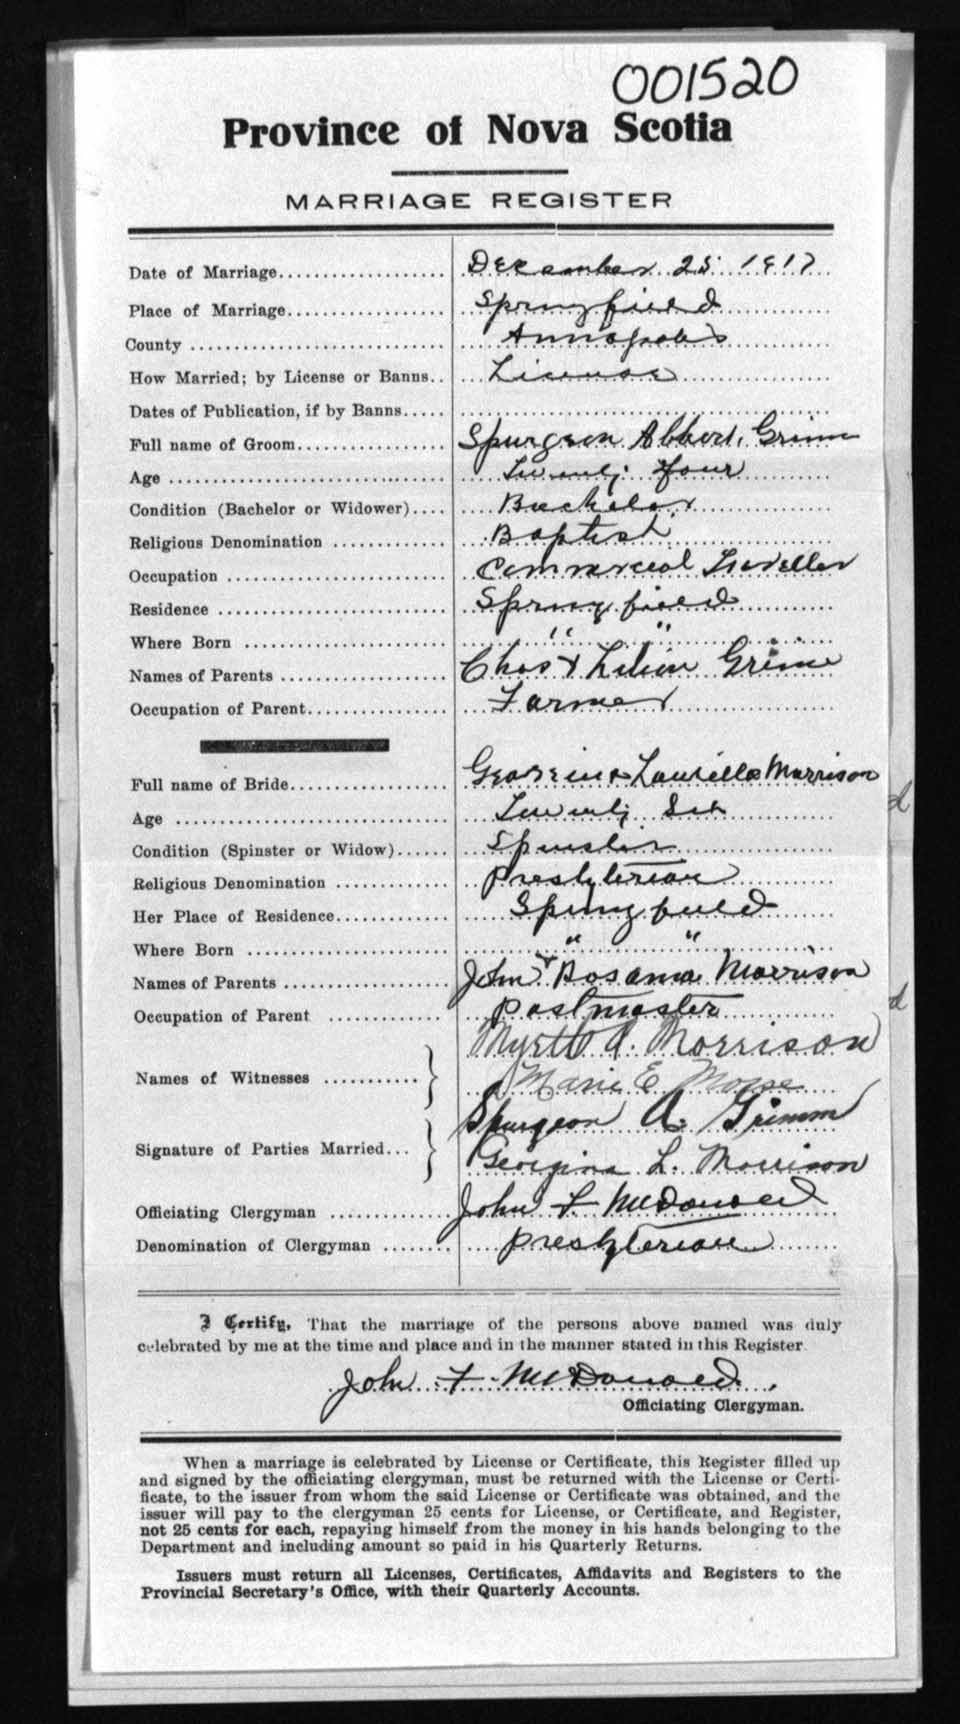 001520
Province of Nova Scotia
MARRIAGE REGISTER
Date of Marriage.................... December 25 1917
Place of Marriage................... Springfield
County .............................. Annapolis
How Married; by License or Banns.. License
Dates of Publication, if by Banns.....
Full name of Groom.................. Spurgeon Abbort Grimm
Age ................................. Twenty four
Condition (Bachelor or Widower).... Bachelor
Religious Denomination .............. Baptist
Occupation .......................... Commercial Traveller
Residence ........................... Springfield
Where Born ........................ " "
Names of Parents .................... Chas & Lilien Grimm
Occupation of Parent................. Farmer
Full name of Bride................... Georgina Laurella Morrison
Age ................................. Twenty Six
Condition (Spinster or Widow)...... Spinster
Religious Denomination ............. Presbyterian
Her Place of Residence............. Springfield
Where Born ........................ " "
Names of Parents .................... John & Rosanna Morrison
Occupation of Parent ............. Postmaster
Names of Witnesses ........... Myrtle A. Morrison
Marie E Morse
Signature of Parties Married... Spurgeon A. Grimm
Georgina L. Morrison
Officiating Clergyman .............. John F McDonald
Denomination of Clergyman ........ Presbyterian
I Certify, That the marriage of the persons above named was duly
celebrated by me at the time and place and in the manner stated in this Register.
John F. McDonald
Officiating Clergyman.
When a marriage is celebrated by License or Certificate, this Register filled up
and signed by the officiating clergyman, must be returned with the License or Certi-
ficate, to the issuer from whom the said License or Certificate was obtained, and the
issuer will pay to the clergyman 25 cents for License, or Certificate, and Register,
not 25 cents for each, repaying himself from the money in his hands belonging to the
Department and including amount so paid in his Quarterly Returns.
Issuers must return all Licenses, Certificates, Affidavits and Registers to the
Provincial Secretary's Office, with their Quarterly Accounts.